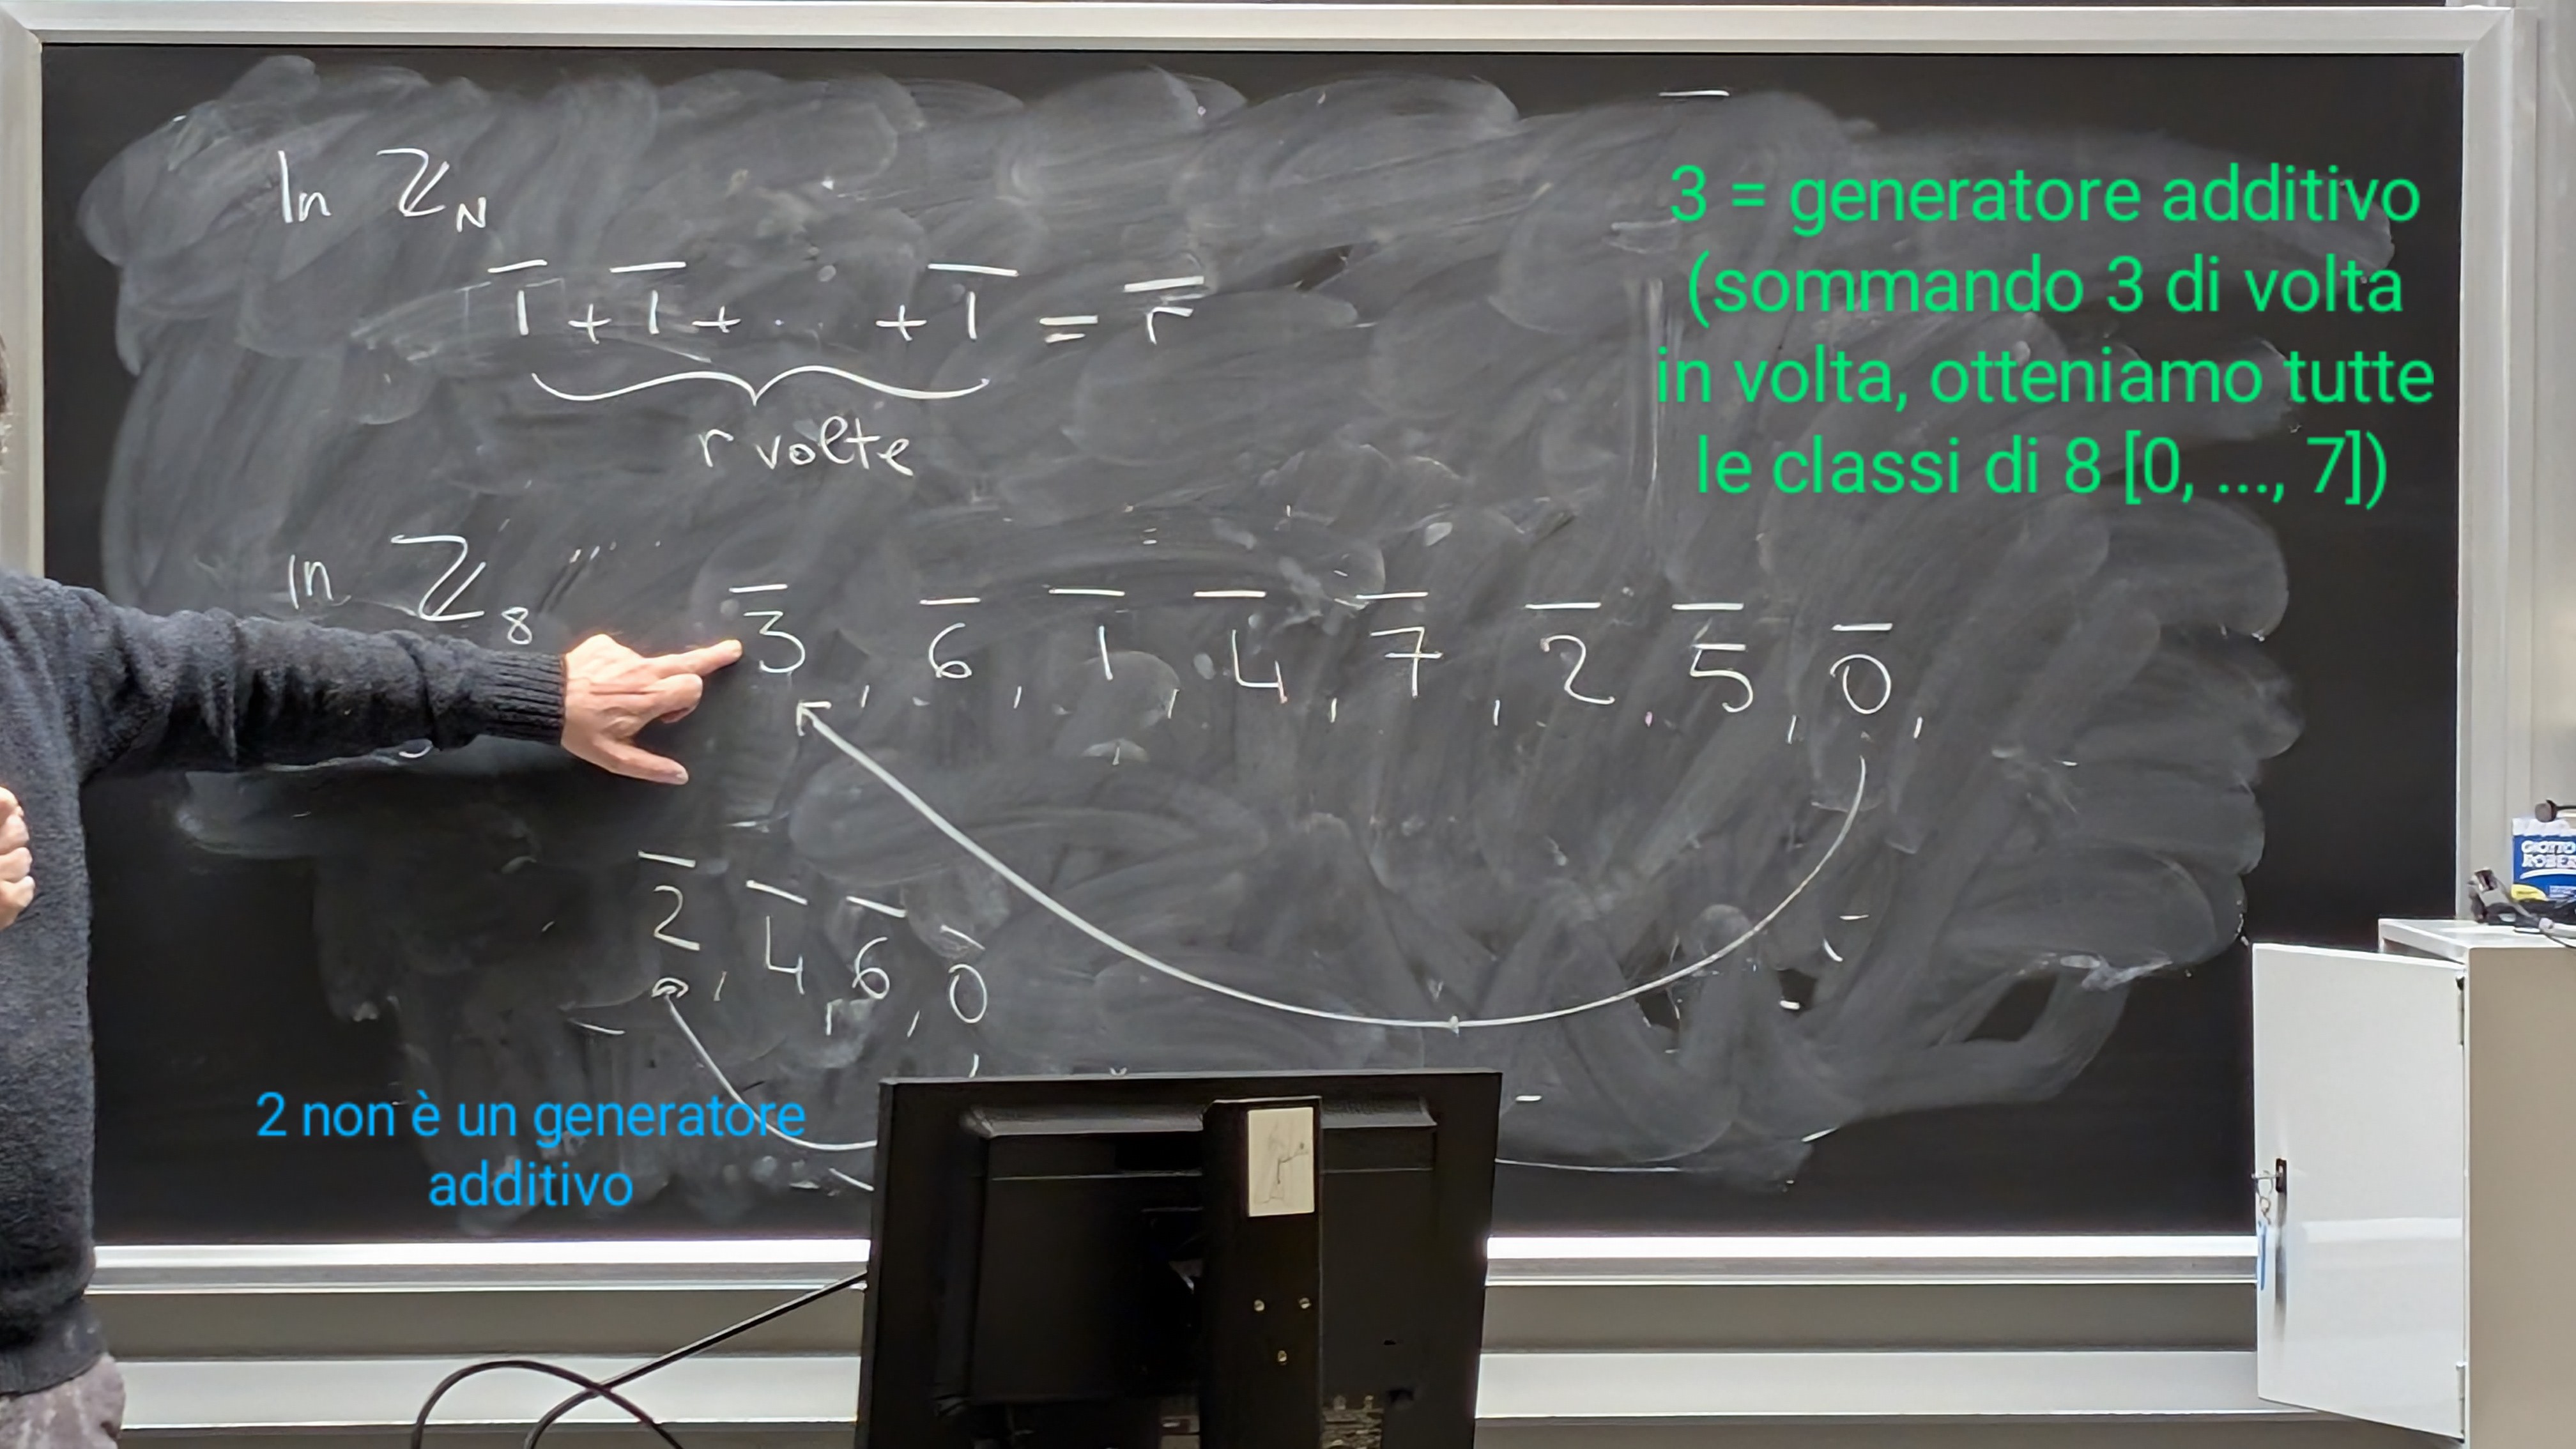 In ℤ_N
1̅ + 1̅ + ... + 1̅ = r̅
r volte
3 = generatore additivo
(sommando 3 di volta
in volta, otteniamo tutte
le classi di 8 [0, ..., 7])
In ℤ_8
3̅, 6̅, 1̅, 4̅, 7̅, 2̅, 5̅, 0̅,
2̅, 4̅, 6̅, 0̅
2 non è un generatore
additivo
GIOTTO